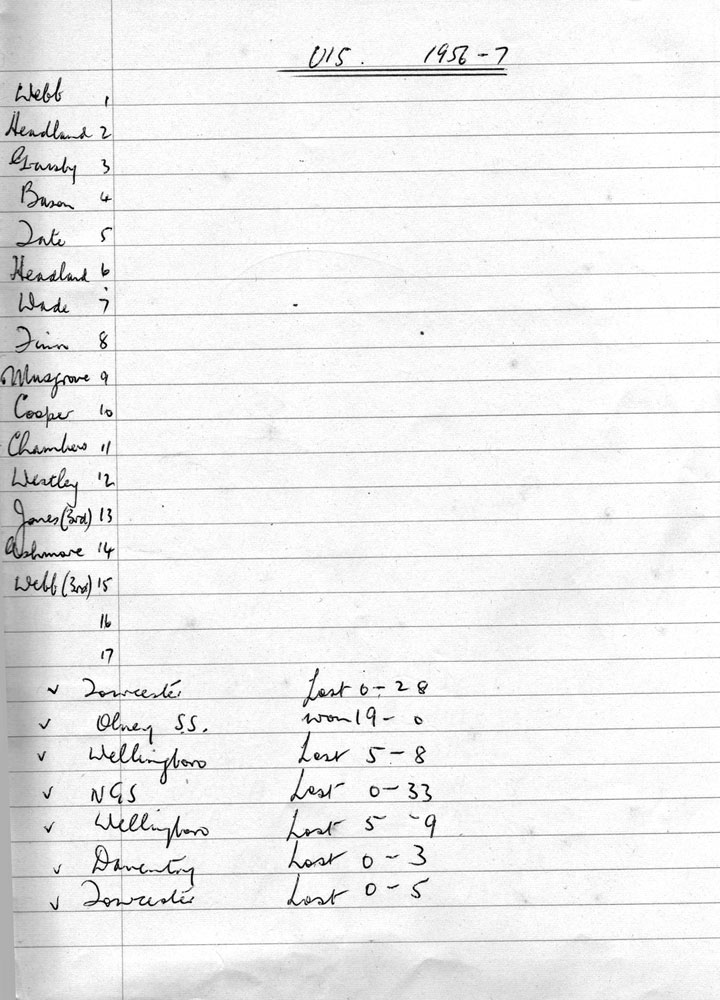 U15. 1956-7
Webb 1
Headland 2
3
Bason 4
Tate 5
Headland 6
Wade 7
Finn 8
Musgrove 9
Cooper 10
Chambers 11
Westley 12
Jones (3rd) 13
Ashmore 14
Webb (3rd) 15
16
17
✓ Towcester Lost 0-28
✓ Olney S.S. won 19-0
✓ Wellingboro Lost 5-8
✓ NGS Lost 0-33
✓ Wellingboro Lost 5-9
✓ Daventry Lost 0-3
✓ Towcester Lost 0-5